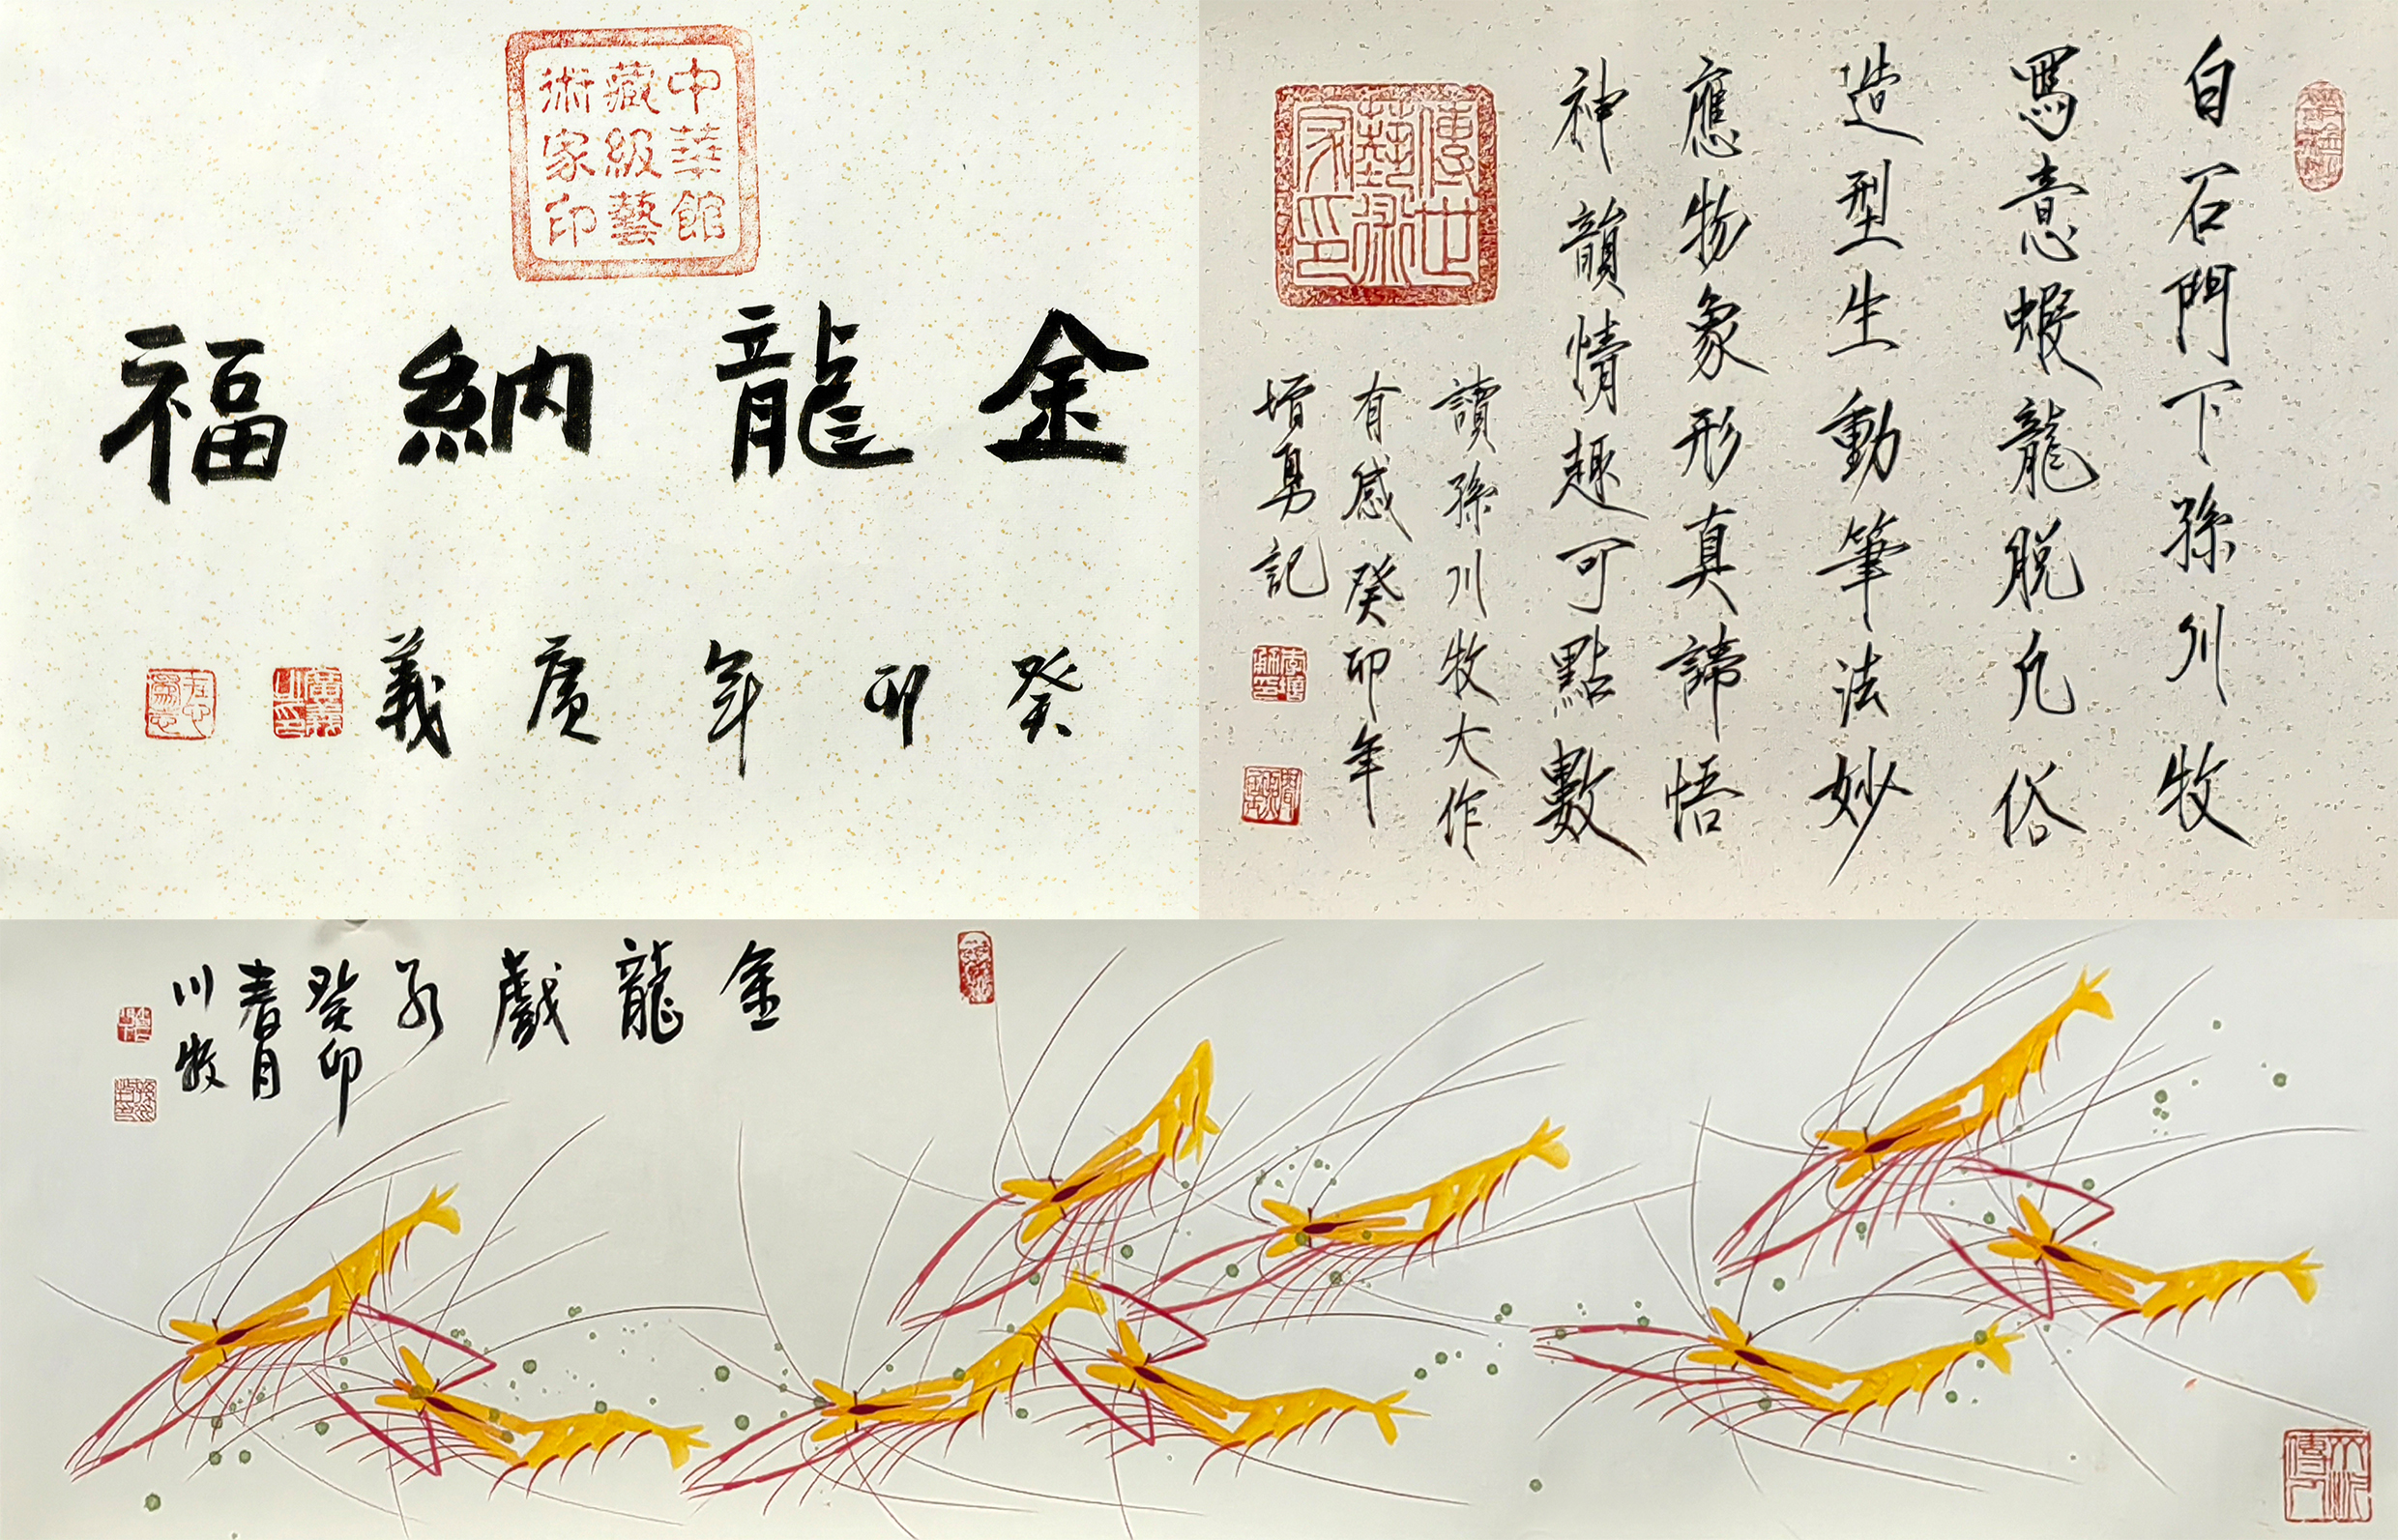 中華館
藏級藝
術家印
金龍納福
癸卯年廣義
廣義之印
白石門下孫川牧
寫意蝦龍脫凡俗
造型生動筆法妙
應物象形真諦悟
神韻情趣可點數
讀孫川牧大作
有感癸卯年
堉勇記
傳世
藝術
家印
金龍戲水
癸卯
春月
川牧